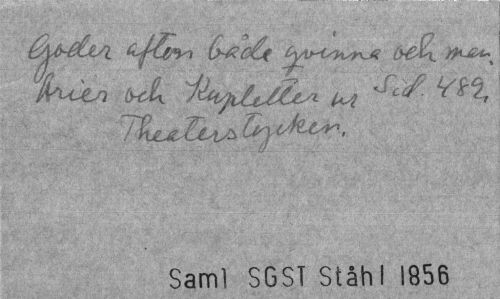 Goder afton både qvinna och man.
Arier och Kupletter ur Sid. 489.
Theaterstycken.
Saml SGST Ståhl 1856